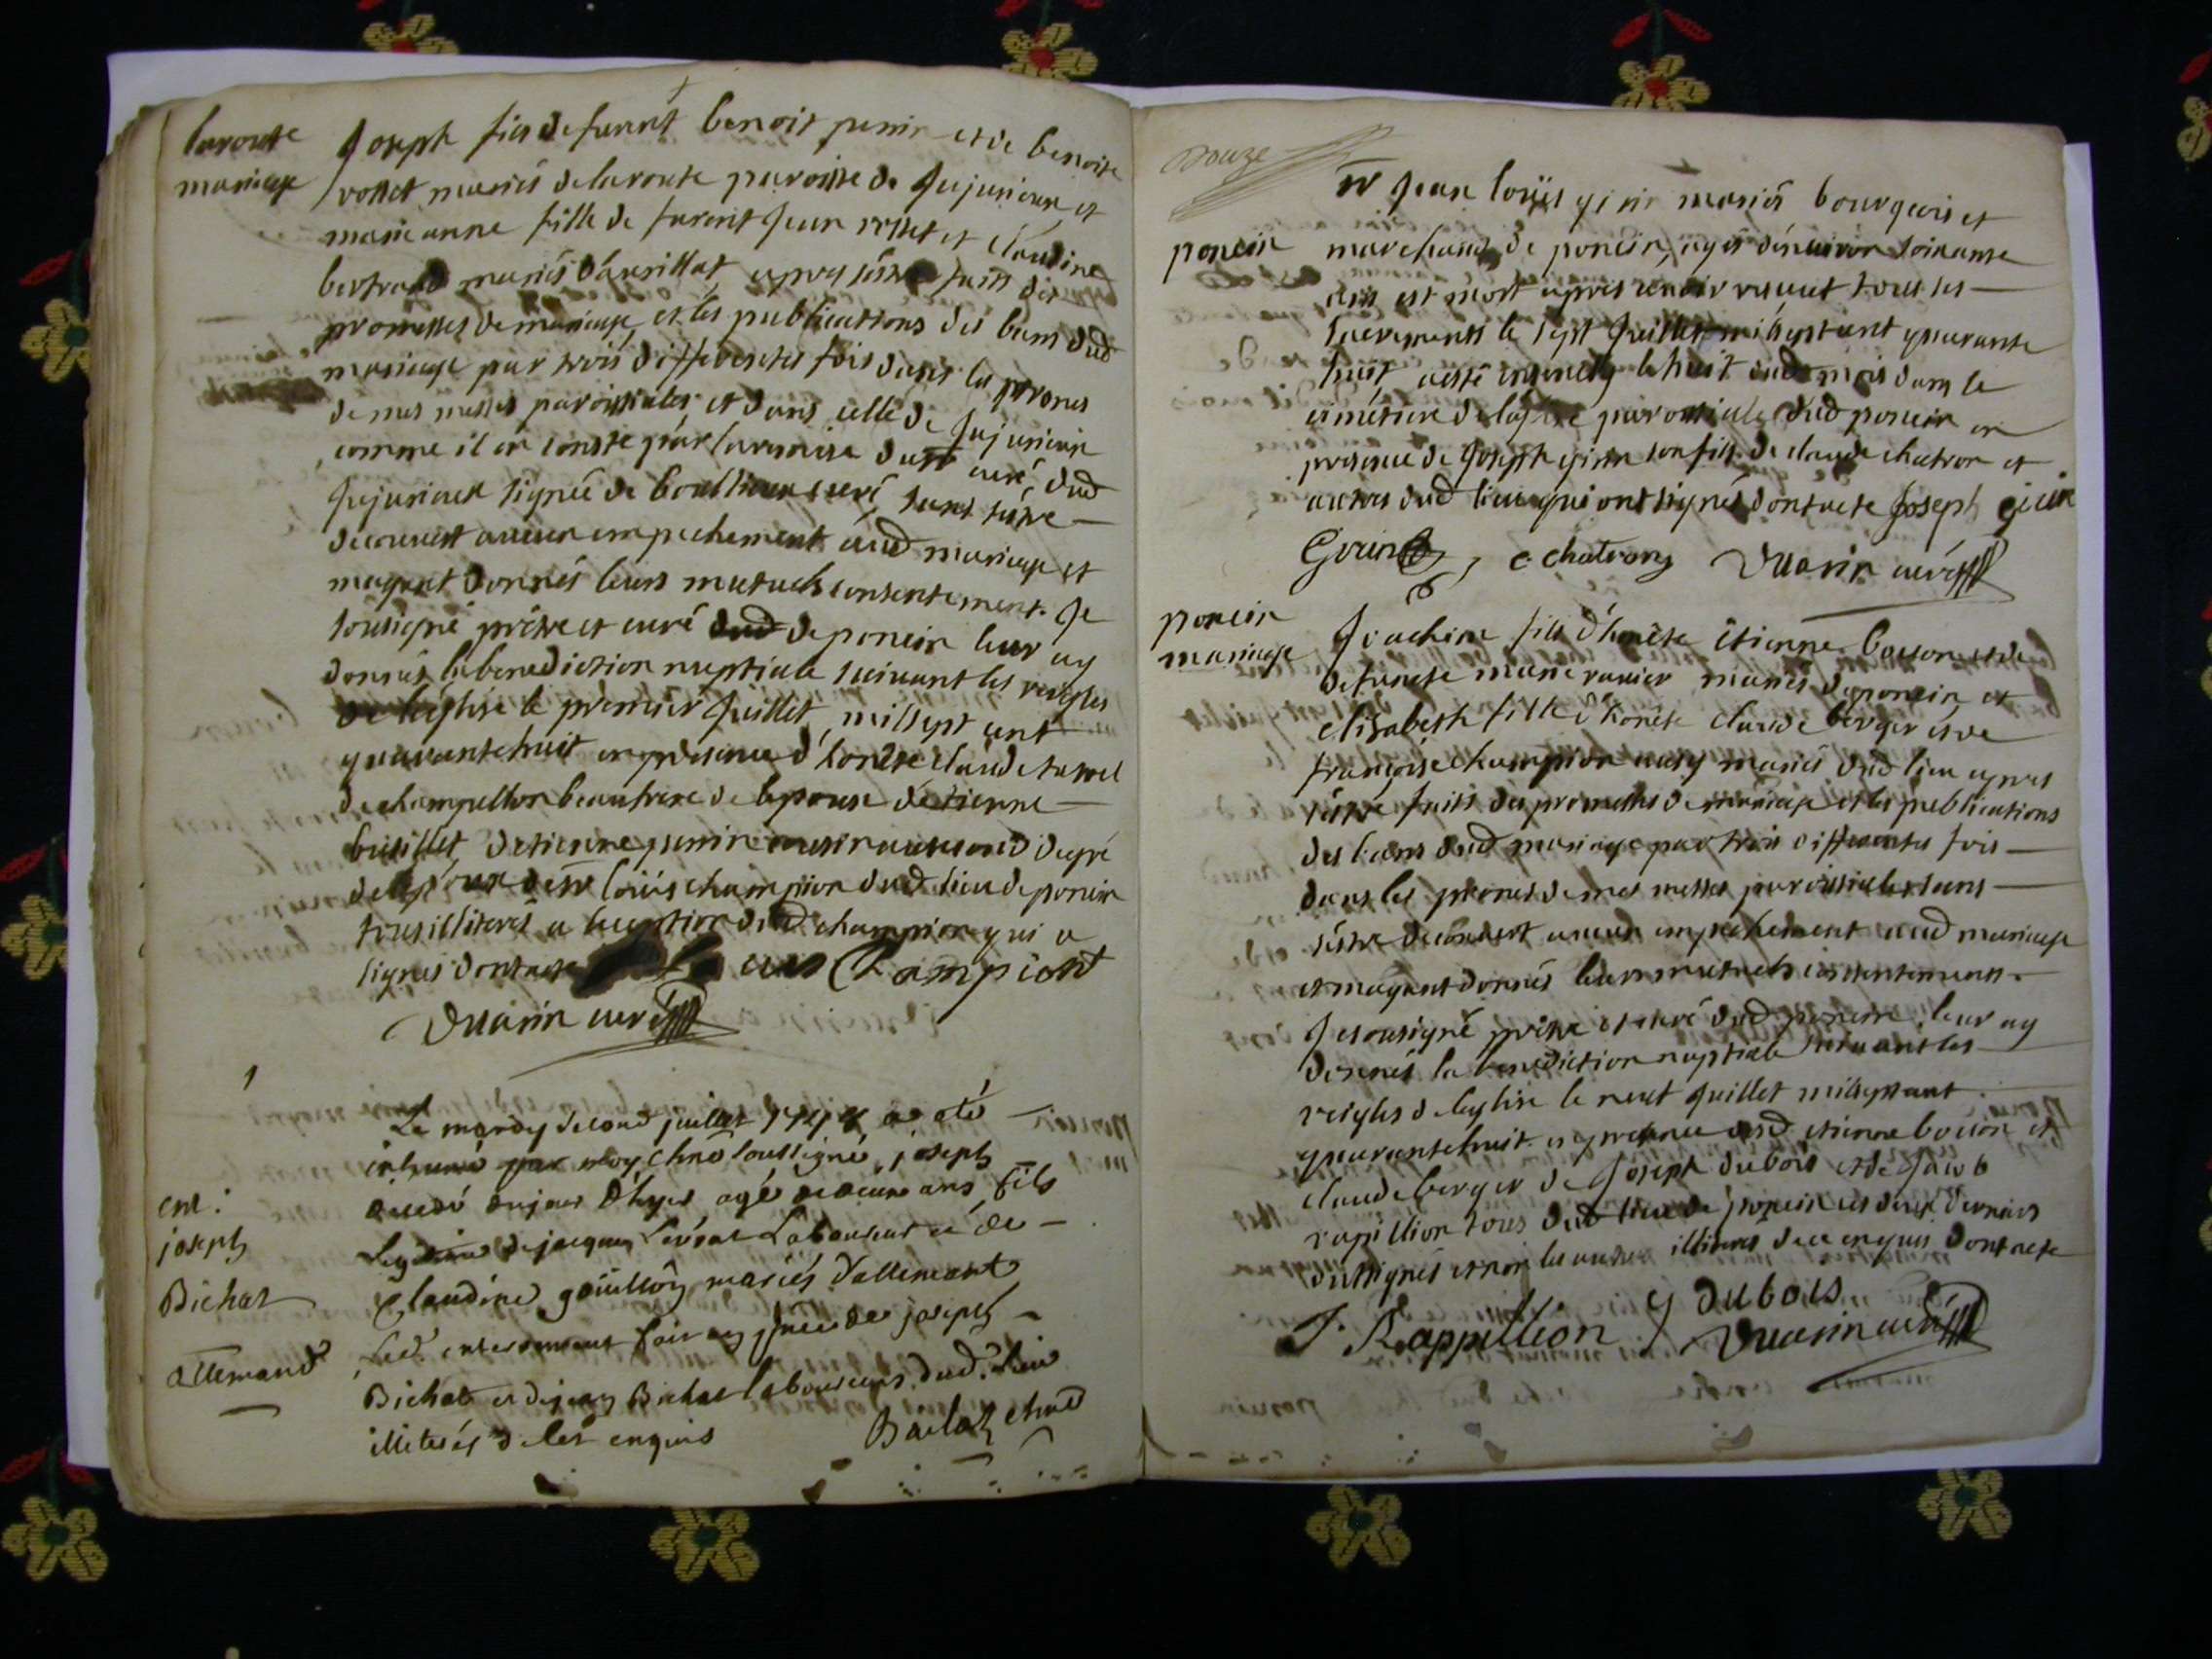 laroute
mariage
Joseph fils de furent benoit perrin et de benoite
rosset mariés de laroute paroisse de Jujurieux et
marie anne fille de furent Jean rosset et claudine
bertrand mariés après s'éstre faits des
promesses de mariage et les publications des bans dud
mariage par trois differentes fois dans la prones
de mes messes paroissiales et dans celle de Jujurieux
comme il en conste par la remise dusr curé dud
Jujurieux signée de curé sans s'éstre
decouvert aucun empechement aud mariage et
mayant donnés leurs mutuels consentement. Je
sousigné prêtre et curé de poncin leur ay
donnés la benediction nuptiale suivant les reigles
de l'église le premier Juillet mil sept cent
quarante huit en présence d'honête claude
de champ beaufrere de lepouse d'etienne
d'etienne perrin cousin au second degré
de lepoux de sr loüis champion dud lieu de poncin
tous illiterés a lexception dud champion qui a
signés dont acte Champion
Duarin curé
Le mardy second juillet a été
inhumé par moy soussigné, joseph
decedé du jour d'hyer agé de ans fils
de jacques Laboureur et de
Claudine mariés d'allemant
Led. enterrement fait en pnce de joseph
Bichat et de jean Bichat laboureurs dud. lieu
illiterés de les enquis
ent:
joseph
Bichat
allemand
douze
poncin
sr Jean loüis girin mariés bourgeois et
marchand de poncin, agés denviron soixante
ans est mort apres avoir receut tous les
sacrements le sept Juillet mil sept cent quarante
huit, a esté ensevely le huit dud mois dans le
cimetiere de leglise paroissiale dud poncin en
presence de Joseph girin son fils de claude chatron et
autres dud lieu qui ont signés dont acte Joseph girin
Girin, c chatron Duarin curé
poncin
mariage
Joachim fils d'honête étienne et de
defunte marie ravier mariés de poncin et
elisabeth fille d'honête claude berger et de
françoise champion aussy mariés dud lieu apres
s'éstre faits des promesses de mariage et les publications
des bans dud mariage par trois differentes fois
dans les prones de mes messes paroissiales sans
s'éstre decouvert aucun empechement aud mariage
et mayant donnés leurs mutuels consentements.
Je sousigné prêtre et curé dud poncin leur ay
donnés la benediction nuptiale suivant les
reigles de leglise le neuf Juillet mil sept cent
quarante huit en presence dud etienne et
claude berger de Joseph dubois et de Jacob
rapillion tous dud lieu de poncin les deux derniers
ont signés et non les autres illiterés de ce enquis dont acte
J. Rappillion J dubois
Duarin curé